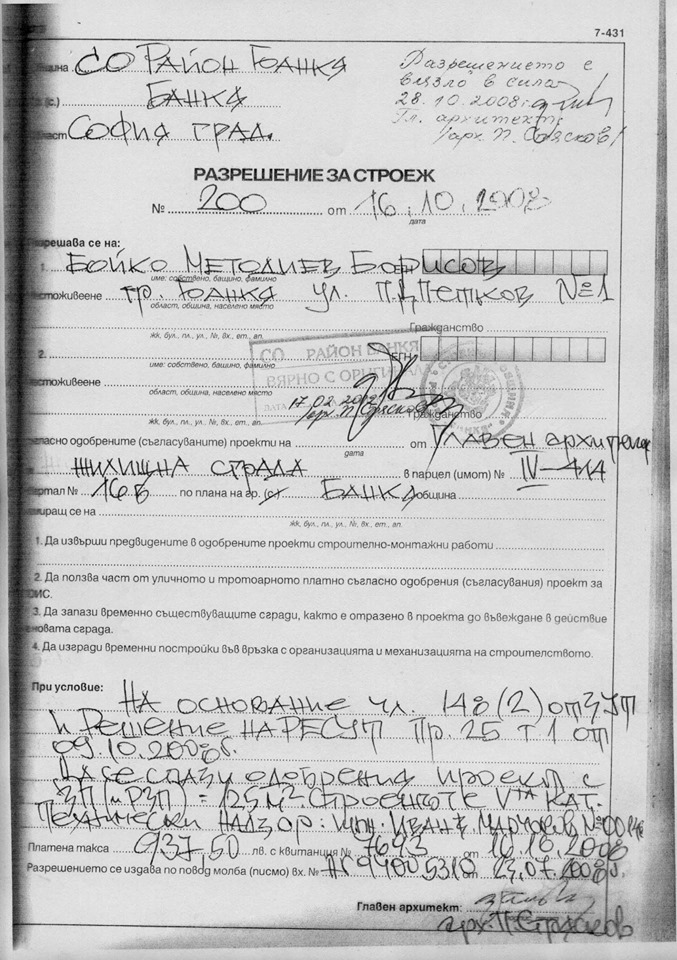 7-431
община СО РАЙОН БАНКЯ
Разрешението е
влязло в сила
гр. (с.) БАНКЯ
28.10.2008г.
Гл. архитект:
област СОФИЯ ГРАД.
/арх. П. Стрясков/
РАЗРЕШЕНИЕ ЗА СТРОЕЖ
№ 200 от 16.10.2008
дата
Разрешава се на:
1. БОЙКО МЕТОДИЕВ БОРИСОВ
име: собствено, бащино, фамилно
местоживеене гр. БАНКЯ ул. П.Д.Петков №1
област, община, населено място
жк, бул., пл., ул., №, вх., ет., ап.
Гражданство
СО РАЙОН БАНКЯ
2. ЕГН
име: собствено, бащино, фамилно
ВЯРНО С ОРИГИНАЛА
местоживеене
област, община, населено място
ДАТА 17.02.2012
арх. П. Стрясков
Гражданство
жк, бул., пл., ул., №, вх., ет., ап.
съгласно одобрените (съгласуваните) проекти на от ГЛАВЕН архитект
дата
ЖИЛИЩНА СГРАДА в парцел (имот) № IV-414
квартал № 16в по плана на гр. (с) БАНКЯ община
намиращ се на
жк, бул., пл., ул., №, вх., ет., ап.
1. Да извърши предвидените в одобрените проекти строително-монтажни работи
2. Да ползва част от уличното и тротоарното платно съгласно одобрения (съгласувания) проект за
ПОИС.
3. Да запази временно съществуващите сгради, както е отразено в проекта до въвеждане в действие
на новата сграда.
4. Да изгради временни постройки във връзка с организацията и механизацията на строителството.
При условие: НА основание чл. 148 (2) от ЗУТ
и РЕШЕНИЕ НА РЕСУТ Пр. 25 т 1 от
09.10.2008г.
Да се спази одобрения проект с
ЗП (и РЗП) = 125 м². Строежът е Vта кат.
Технически НАДЗОР: инж. ИВАН
Платена такса 937,50 лв. с квитанция № 7643 от 16.10.2008
Разрешението се издава по повод молба (писмо) вх. № 23.07.2008г.
Главен архитект:
арх. П. Стрясков